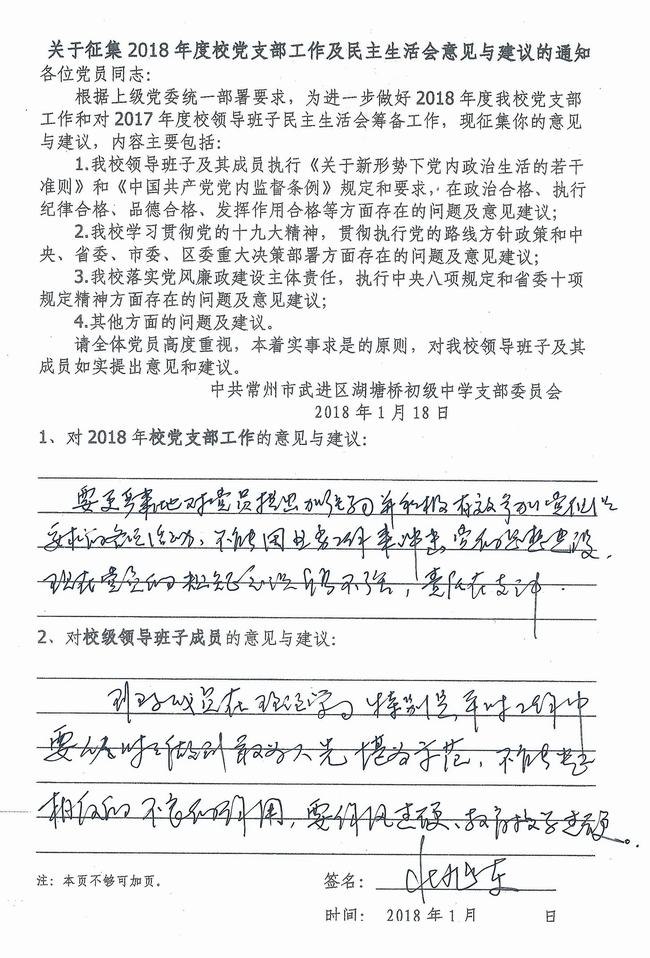 关于征集 2018 年度校党支部工作及民主生活会意见与建议的通知
各位党员同志：
根据上级党委统一部署要求，为进一步做好 2018 年度我校党支部
工作和对 2017 年度校领导班子民主生活会筹备工作，现征集你的意见
与建议，内容主要包括：
1.我校领导班子及其成员执行《关于新形势下党内政治生活的若干
准则》和《中国共产党党内监督条例》规定和要求，在政治合格、执行
纪律合格、品德合格、发挥作用合格等方面存在的问题及意见建议；
2.我校学习贯彻党的十九大精神，贯彻执行党的路线方针政策和中
央、省委、市委、区委重大决策部署方面存在的问题及意见建议；
3.我校落实党风廉政建设主体责任，执行中央八项规定和省委十项
规定精神方面存在的问题及意见建议；
4.其他方面的问题及建议。
请全体党员高度重视，本着实事求是的原则，对我校领导班子及其
成员如实提出意见和建议。
中共常州市武进区湖塘桥初级中学支部委员会
2018 年 1 月 18 日
1、对 2018 年校党支部工作的意见与建议：
要更严肃地对党员提出加强学习并积极有效参加党组织
要求的各项活动，不能用业务工作来冲击党的思想建设，
现在党员的组织意识不强，责任在支部.
2、对校级领导班子成员的意见与建议：
班子成员在理论学习特别是平时工作中
要从各时做到敢为人先 堪为示范，不能起
相反的不良的作用，要作风过硬、教育教学过硬。
注：本页不够可加页。
签名：
时间： 2018 年 1 月 日